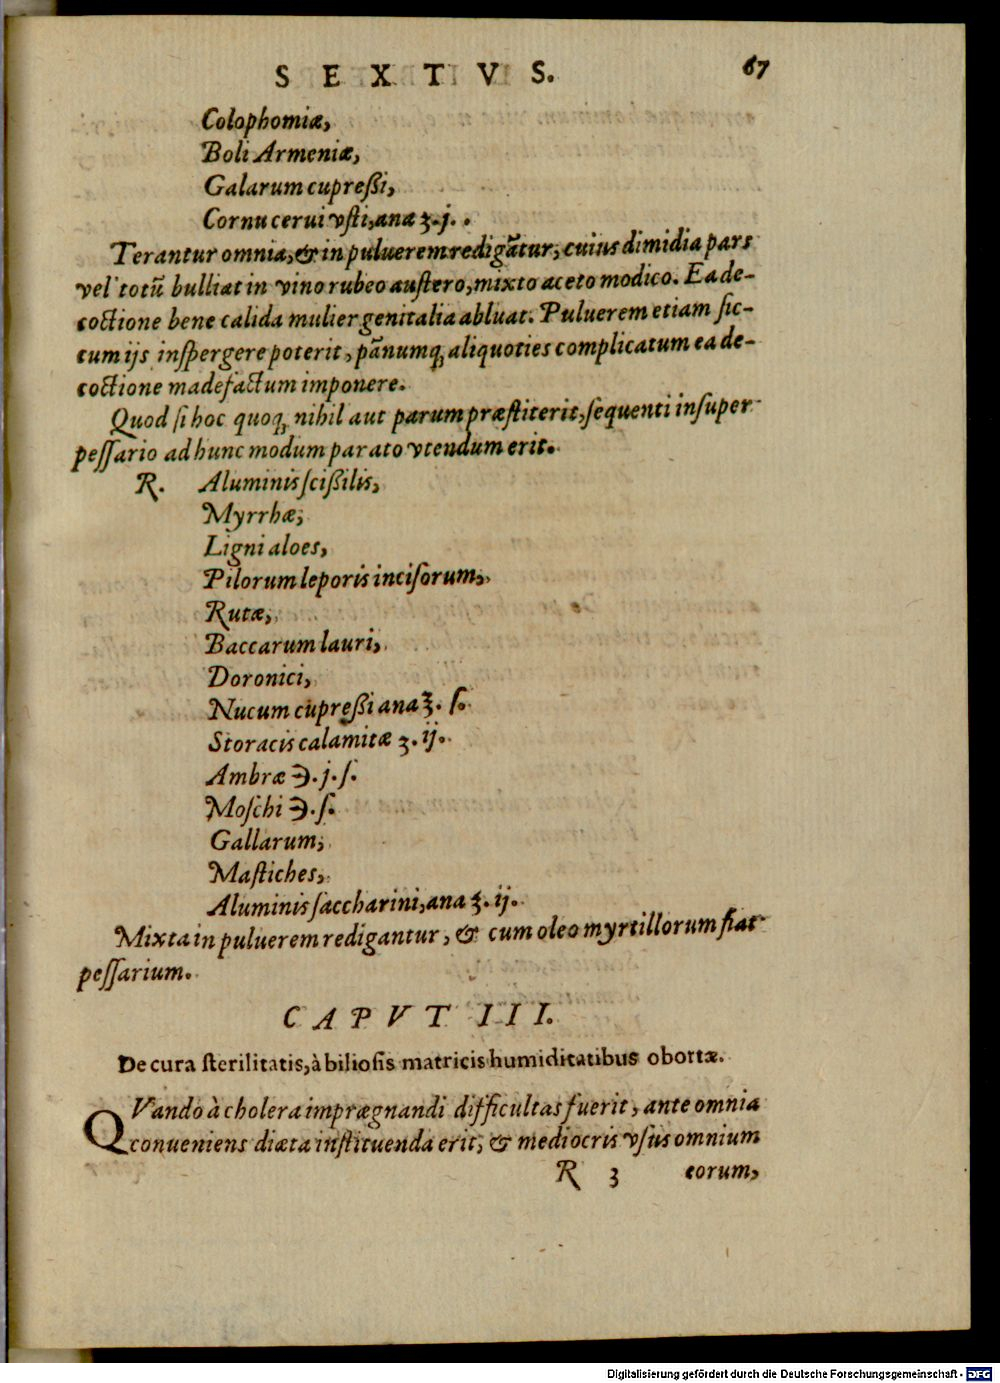 S E X T V S. 67
Colophomiæ,
Boli Armeniæ,
Galarum cupreßi,
Cornu cerui vſti, ana ʒ. j.
Terantur omnia, & in puluerem redigātur, cuius dimidia pars
vel totū bulliat in vino rubeo auſtero, mixto aceto modico. Ea de-
coctione bene calida mulier genitalia abluat. Puluerem etiam ſic-
cum ijs inſpergere poterit, pānumq́; aliquoties complicatum ea de-
coctione madefactum imponere.
Quod ſi hoc quoq; nihil aut parum præſtiterit, ſequenti inſuper
peſſario ad hunc modum parato vtendum erit.
R. Aluminis ſcißilis,
Myrrhæ,
Ligni aloes,
Pilorum leporis inciſorum,
Rutæ,
Baccarum lauri,
Doronici,
Nucum cupreßi ana ʒ. ſ.
Storacis calamitæ ʒ. ij.
Ambræ ℈. j. ſ.
Moſchi ℈. ſ.
Gallarum,
Maſtiches,
Aluminis ſaccharini, ana ʒ. ij.
Mixta in puluerem redigantur, & cum oleo myrtillorum fiat
peſſarium.
C A P V T I I I.
De cura ſterilitatis, à bilioſis matricis humiditatibus obortæ.
QVando à cholera imprægnandi difficultas fuerit, ante omnia
conueniens diæta inſtituenda erit, & mediocris vſus omnium
R 3 eorum,
Digitalisierung gefördert durch die Deutsche Forschungsgemeinschaft - DFG